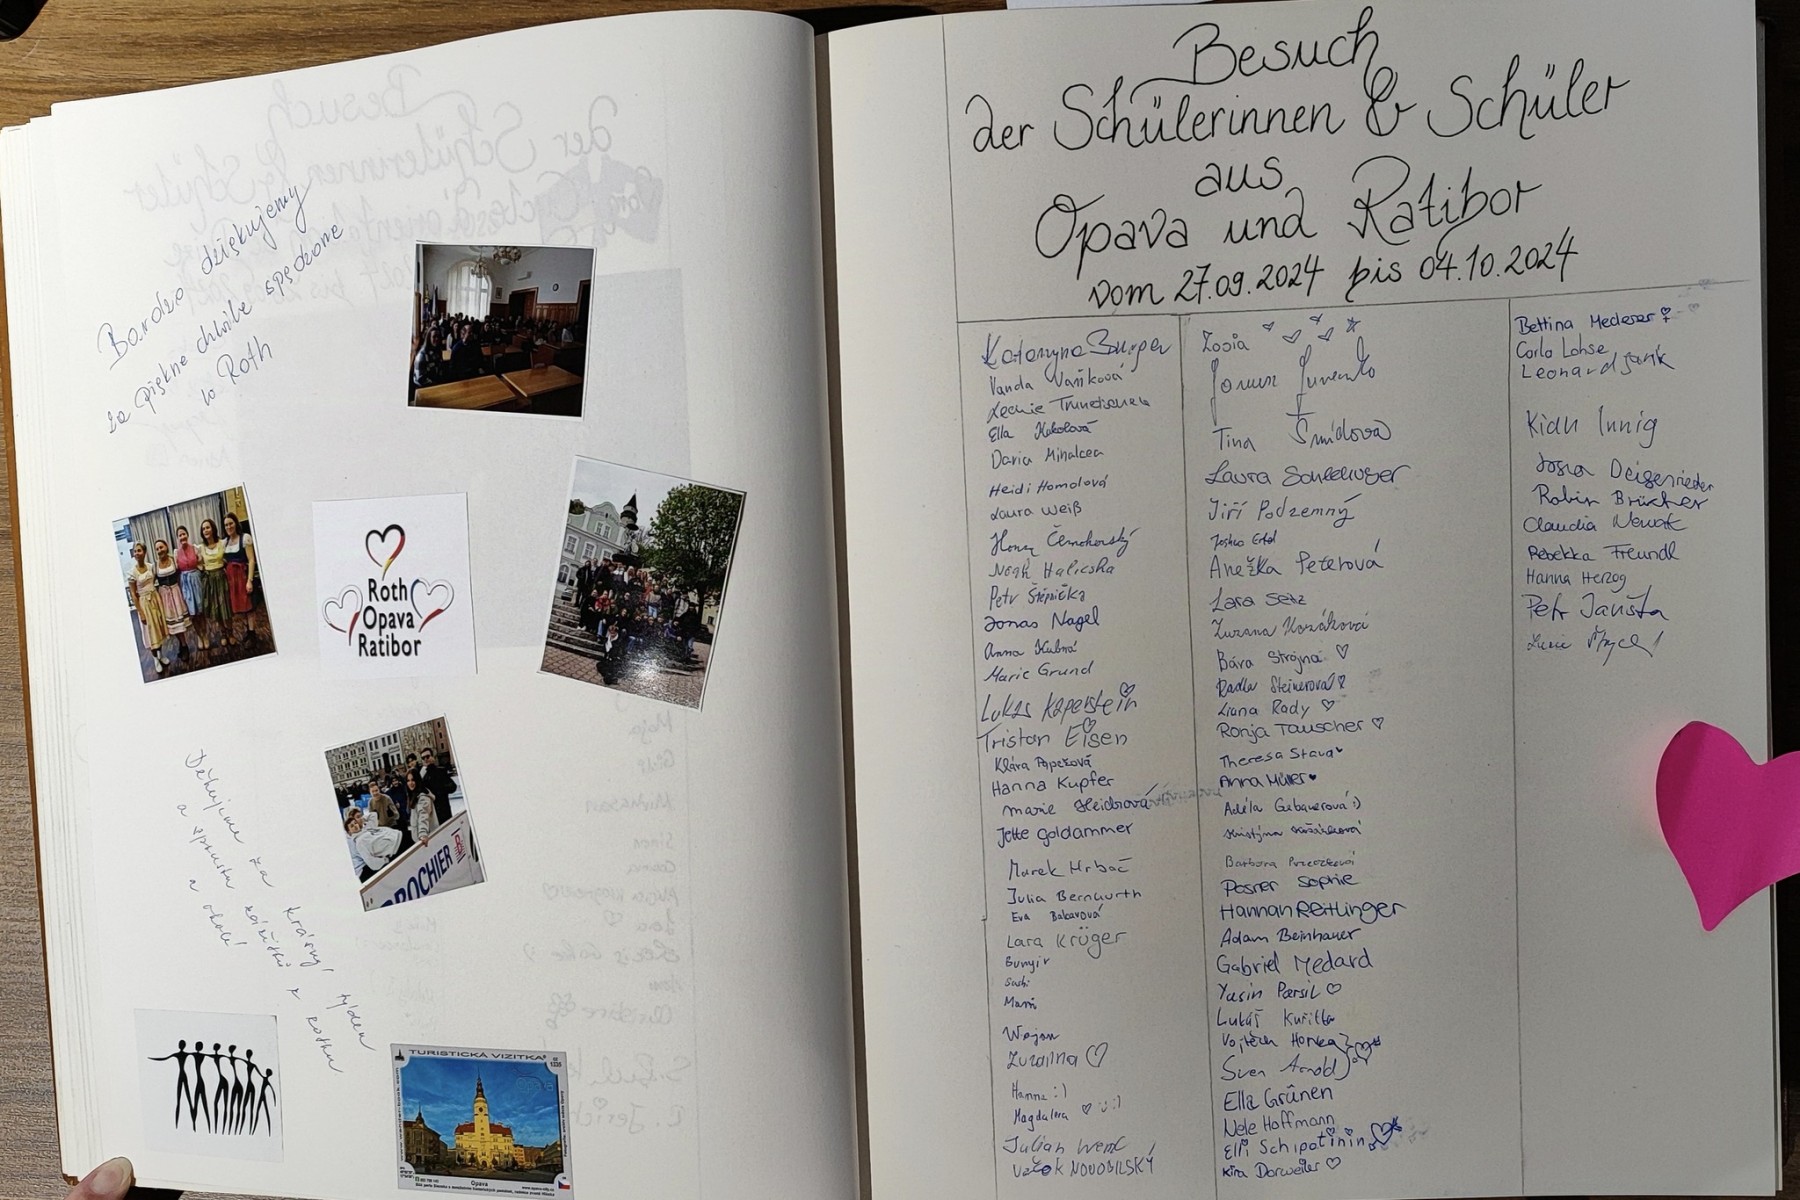 Bardzo dziękujemy
za piękne chwile spędzone
w Roth
Roth
Opava
Ratibor
ROCHIER
Děkujeme za krásný týden
a spoustu zážitků z Rothu
a okolí
TURISTICKÁ VIZITKA
Opava
Besuch
der Schülerinnen & Schüler
aus
Opava und Ratibor
vom 27.09.2024 bis 04.10.2024
Katarzyna Burger
Vanda Vaňková
Ella Kokolová
Daria Mihalcea
Heidi Homolová
Laura Weiß
Černohorský
Noah Halicska
Petr Štěpnička
Jonas Nagel
Anna Kubná
Marie Grund
Lukas Kaperstein
Tristan Eisen
Klára Papežová
Hanna Kupfer
Marie Heidrová
Jette Goldammer
Marek Hrbáč
Julia Bernwurth
Eva Bakarová
Lara Krüger
Sushi
Wojan
Zuzanna ♡
Hanna :)
Magdalena ♡ :)
Julian
NOVOBILSKÝ
Zosia
Tina Šmídová
Laura
Jiří Podzemný
Joshua Ertel
Anežka Peterová
Lara Seiz
Zuzana Kozáková
Bára Strojná ♡
Radka Steinerová ♡
Liana Rady ♡
Ronja Tauscher ♡
Theresa Stava ♥
Anna Müller ♥
Adéla Gebauerová :)
Kristýna
Barbora
Posner Sophie
Hannah Reitlinger
Adam Beinhauer
Gabriel Medard
Yasin Parsil ♡
Lukáš Kuřitka
Vojtěch
Sven Arnold
Ella Grünen
Nele Hoffmann
Elli Schipatinin
Kira Dorweiler ♡
Bettina Mederer
Carlo Lohse
Leonard Janik
Kian Innig
Josua Deigenrieder
Robin Brückner
Claudia Nowak
Rebekka Freundl
Hanna Herzog
Petr Janišta